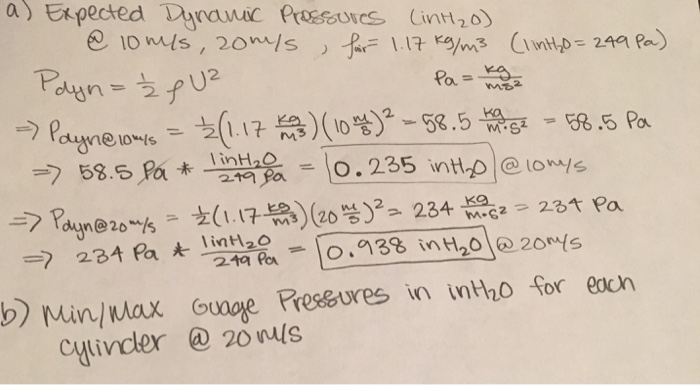 a) Expected Dynamic Pressures (inH₂O)
@ 10 m/s, 20m/s , ρair = 1.17 kg/m3 (1inH₂O = 249 Pa)
Pdyn = 1/2 ρU² Pa = kg/ms²
=> Pdyn@10m/s = 1/2(1.17 kg/m³)(10 m/s)² = 58.5 kg/m·s² = 58.5 Pa
=> 58.5 Pa * 1inH₂O/249 Pa = 0.235 inH₂O @ 10m/s
=> Pdyn@20m/s = 1/2(1.17 kg/m³)(20 m/s)² = 234 kg/m·s² = 234 Pa
=> 234 Pa * 1inH₂O/249 Pa = 0.938 inH₂O @ 20m/s
b) Min/Max Guage Pressures in inH₂O for each
cylinder @ 20 m/s